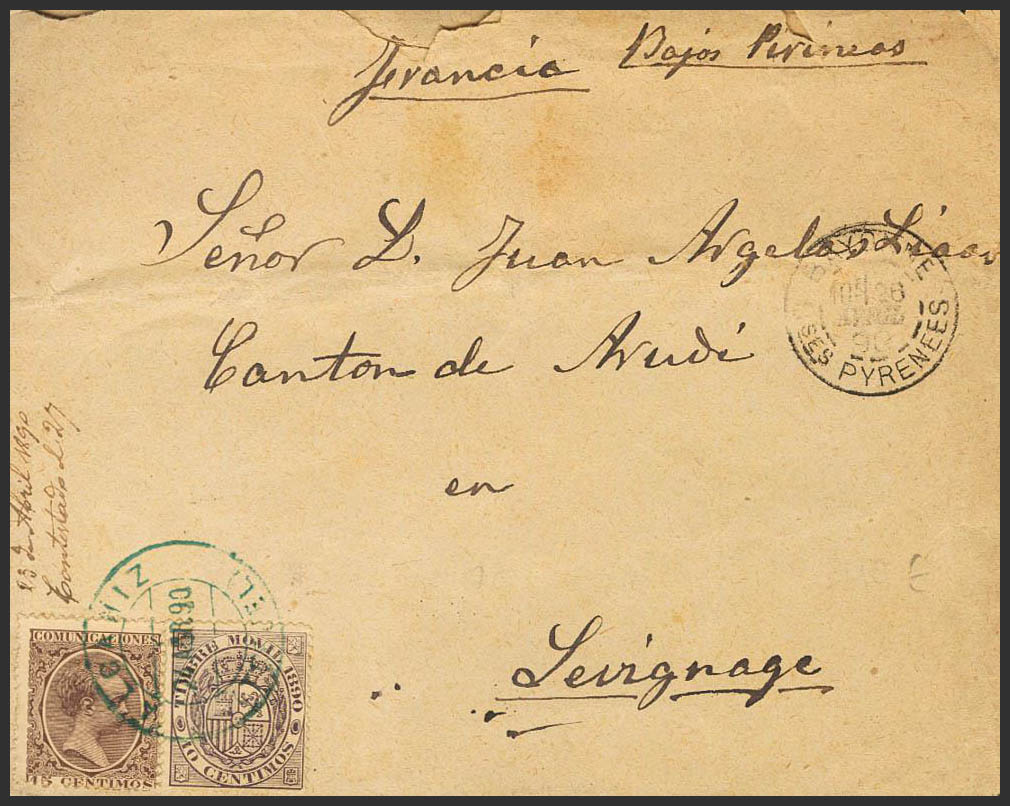 Francia Bajos Pirineos
Señor D. Juan Argelas
Canton de Arudi
en
Sevignage
23 de Abril 1890
Contestado el 27
BAYONNE
26
AVRIL
90
SES PYRENEES
COMUNICACIONES
15 CENTIMOS
TIMBRE MOVIL 1890
10 CENTIMOS